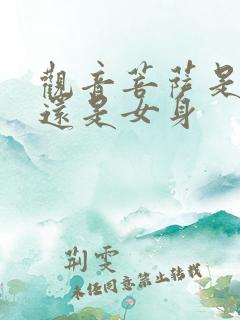 觀音菩薩是
還是女身
荆雯
未经同意禁止转载